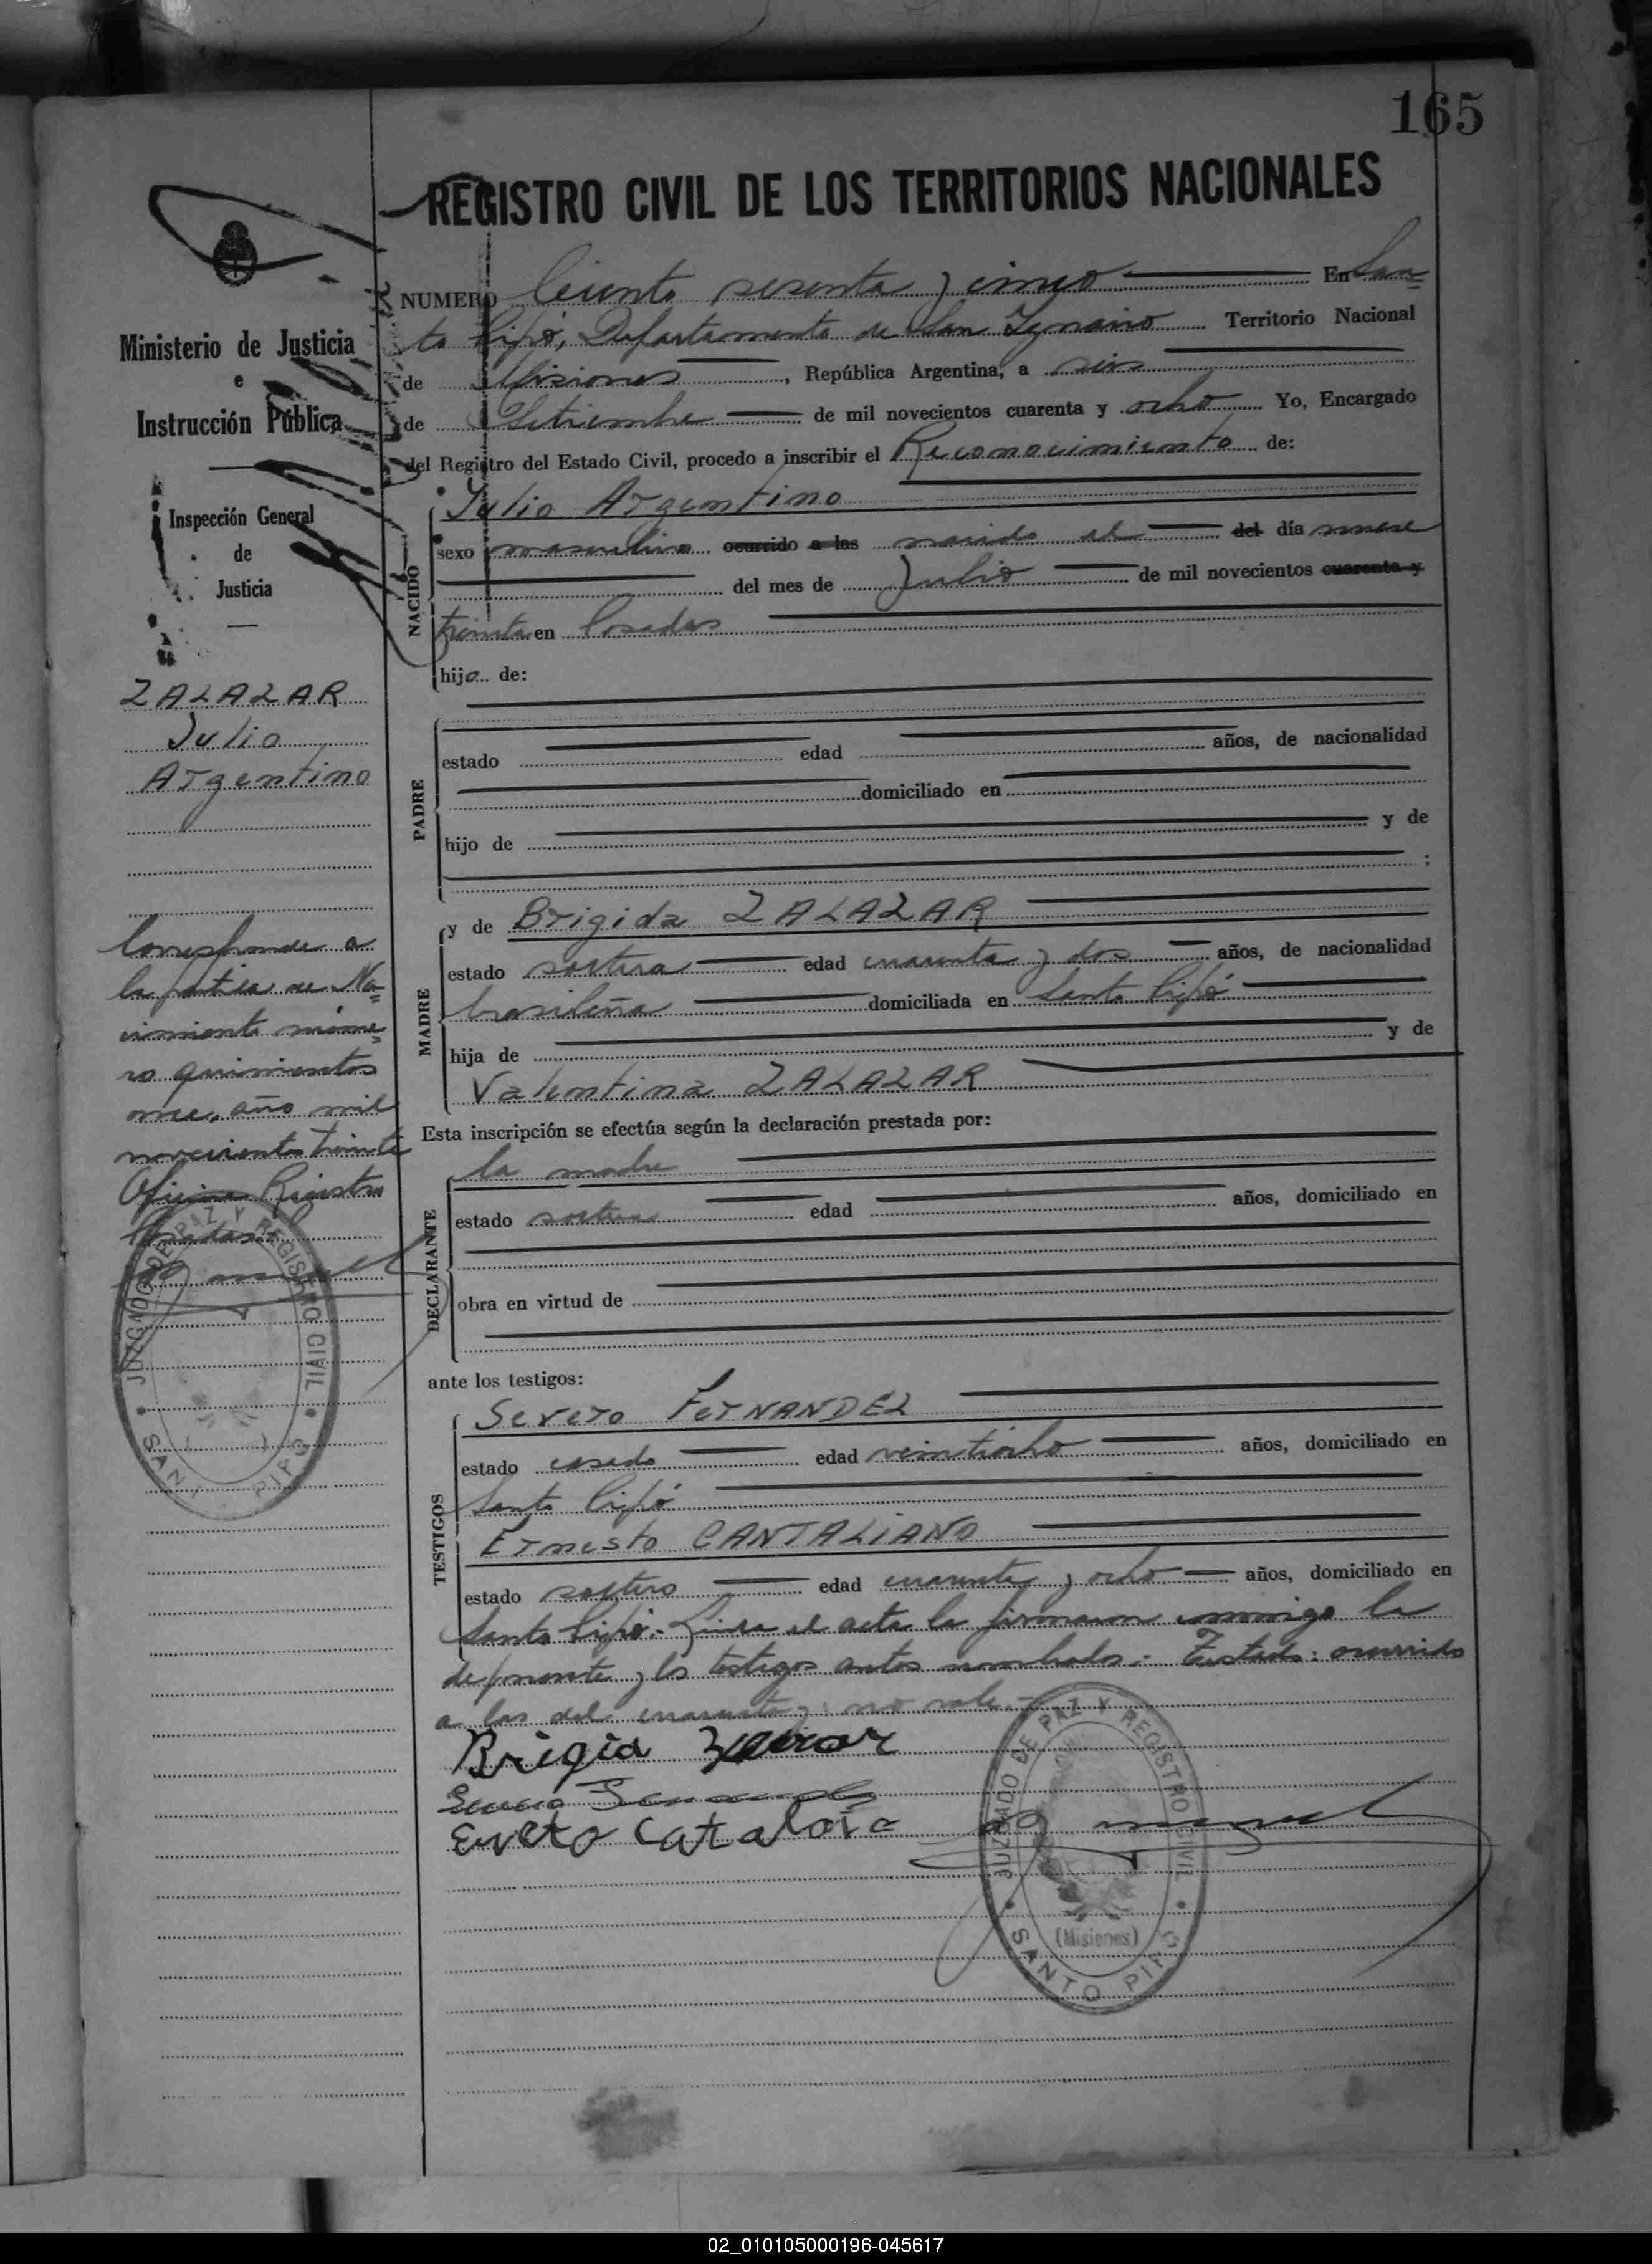 165
REGISTRO CIVIL DE LOS TERRITORIOS NACIONALES
Ministerio de Justicia
e
Instrucción Pública
Inspección General
de
Justicia
ZALAZAR
Julio
Argentino
Corresponde a
la partida de Na=
cimiento núme=
ro quinientos
once, año mil
novecientos treinta
Oficina Registro
Posadas
JUZGADO DE PAZ Y REGISTRO CIVIL
SANTO PIPO
NUMERO Ciento sesenta y cinco En San=
to Pipó, Departamento de San Ignacio Territorio Nacional
de Misiones, República Argentina, a seis
de Setiembre de mil novecientos cuarenta y ocho Yo, Encargado
del Registro del Estado Civil, procedo a inscribir el Reconocimiento de:
NACIDO
Julio Argentino
sexo masculino ocurrido a las nacido el del día nueve
del mes de Julio de mil novecientos cuarenta y
treinta en Posadas
hijo de:
PADRE
estado edad años, de nacionalidad
domiciliado en
hijo de y de
;
MADRE
y de Brigida ZALAZAR
estado soltera edad cuarenta y dos años, de nacionalidad
brasileña domiciliada en Santo Pipó
hija de y de
Valentina ZALAZAR
Esta inscripción se efectúa según la declaración prestada por:
DECLARANTE
la madre
estado soltera edad años, domiciliado en
obra en virtud de
ante los testigos:
TESTIGOS
Severo FerNANDEZ
estado casado edad veintiocho años, domiciliado en
Santo Pipó
Ernesto CANTALIANO
estado soltero edad cuarenta y ocho años, domiciliado en
Santo Pipó.- Leída el acta la firmaron conmigo la
deponente y los testigos antes nombrados.- Testado: ocurrido
a las del cuarenta y: no vale.-
Brigia
Severo
Catalo
JUZGADO DE PAZ Y REGISTRO CIVIL
(Misiones)
SANTO PIPO
02_010105000196-045617